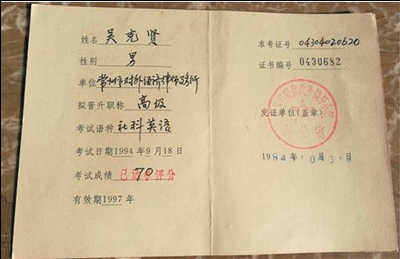 姓名 吴克贤
性别 男
单位 常州市对外经济律师事务所
拟晋升职称 高级
考试语种 社科英语
考试日期1994年9月18日
考试成绩 70
有效期1997年
准考证号 04304020620
证书编号 0430682
发证单位(盖章)
1994年10月